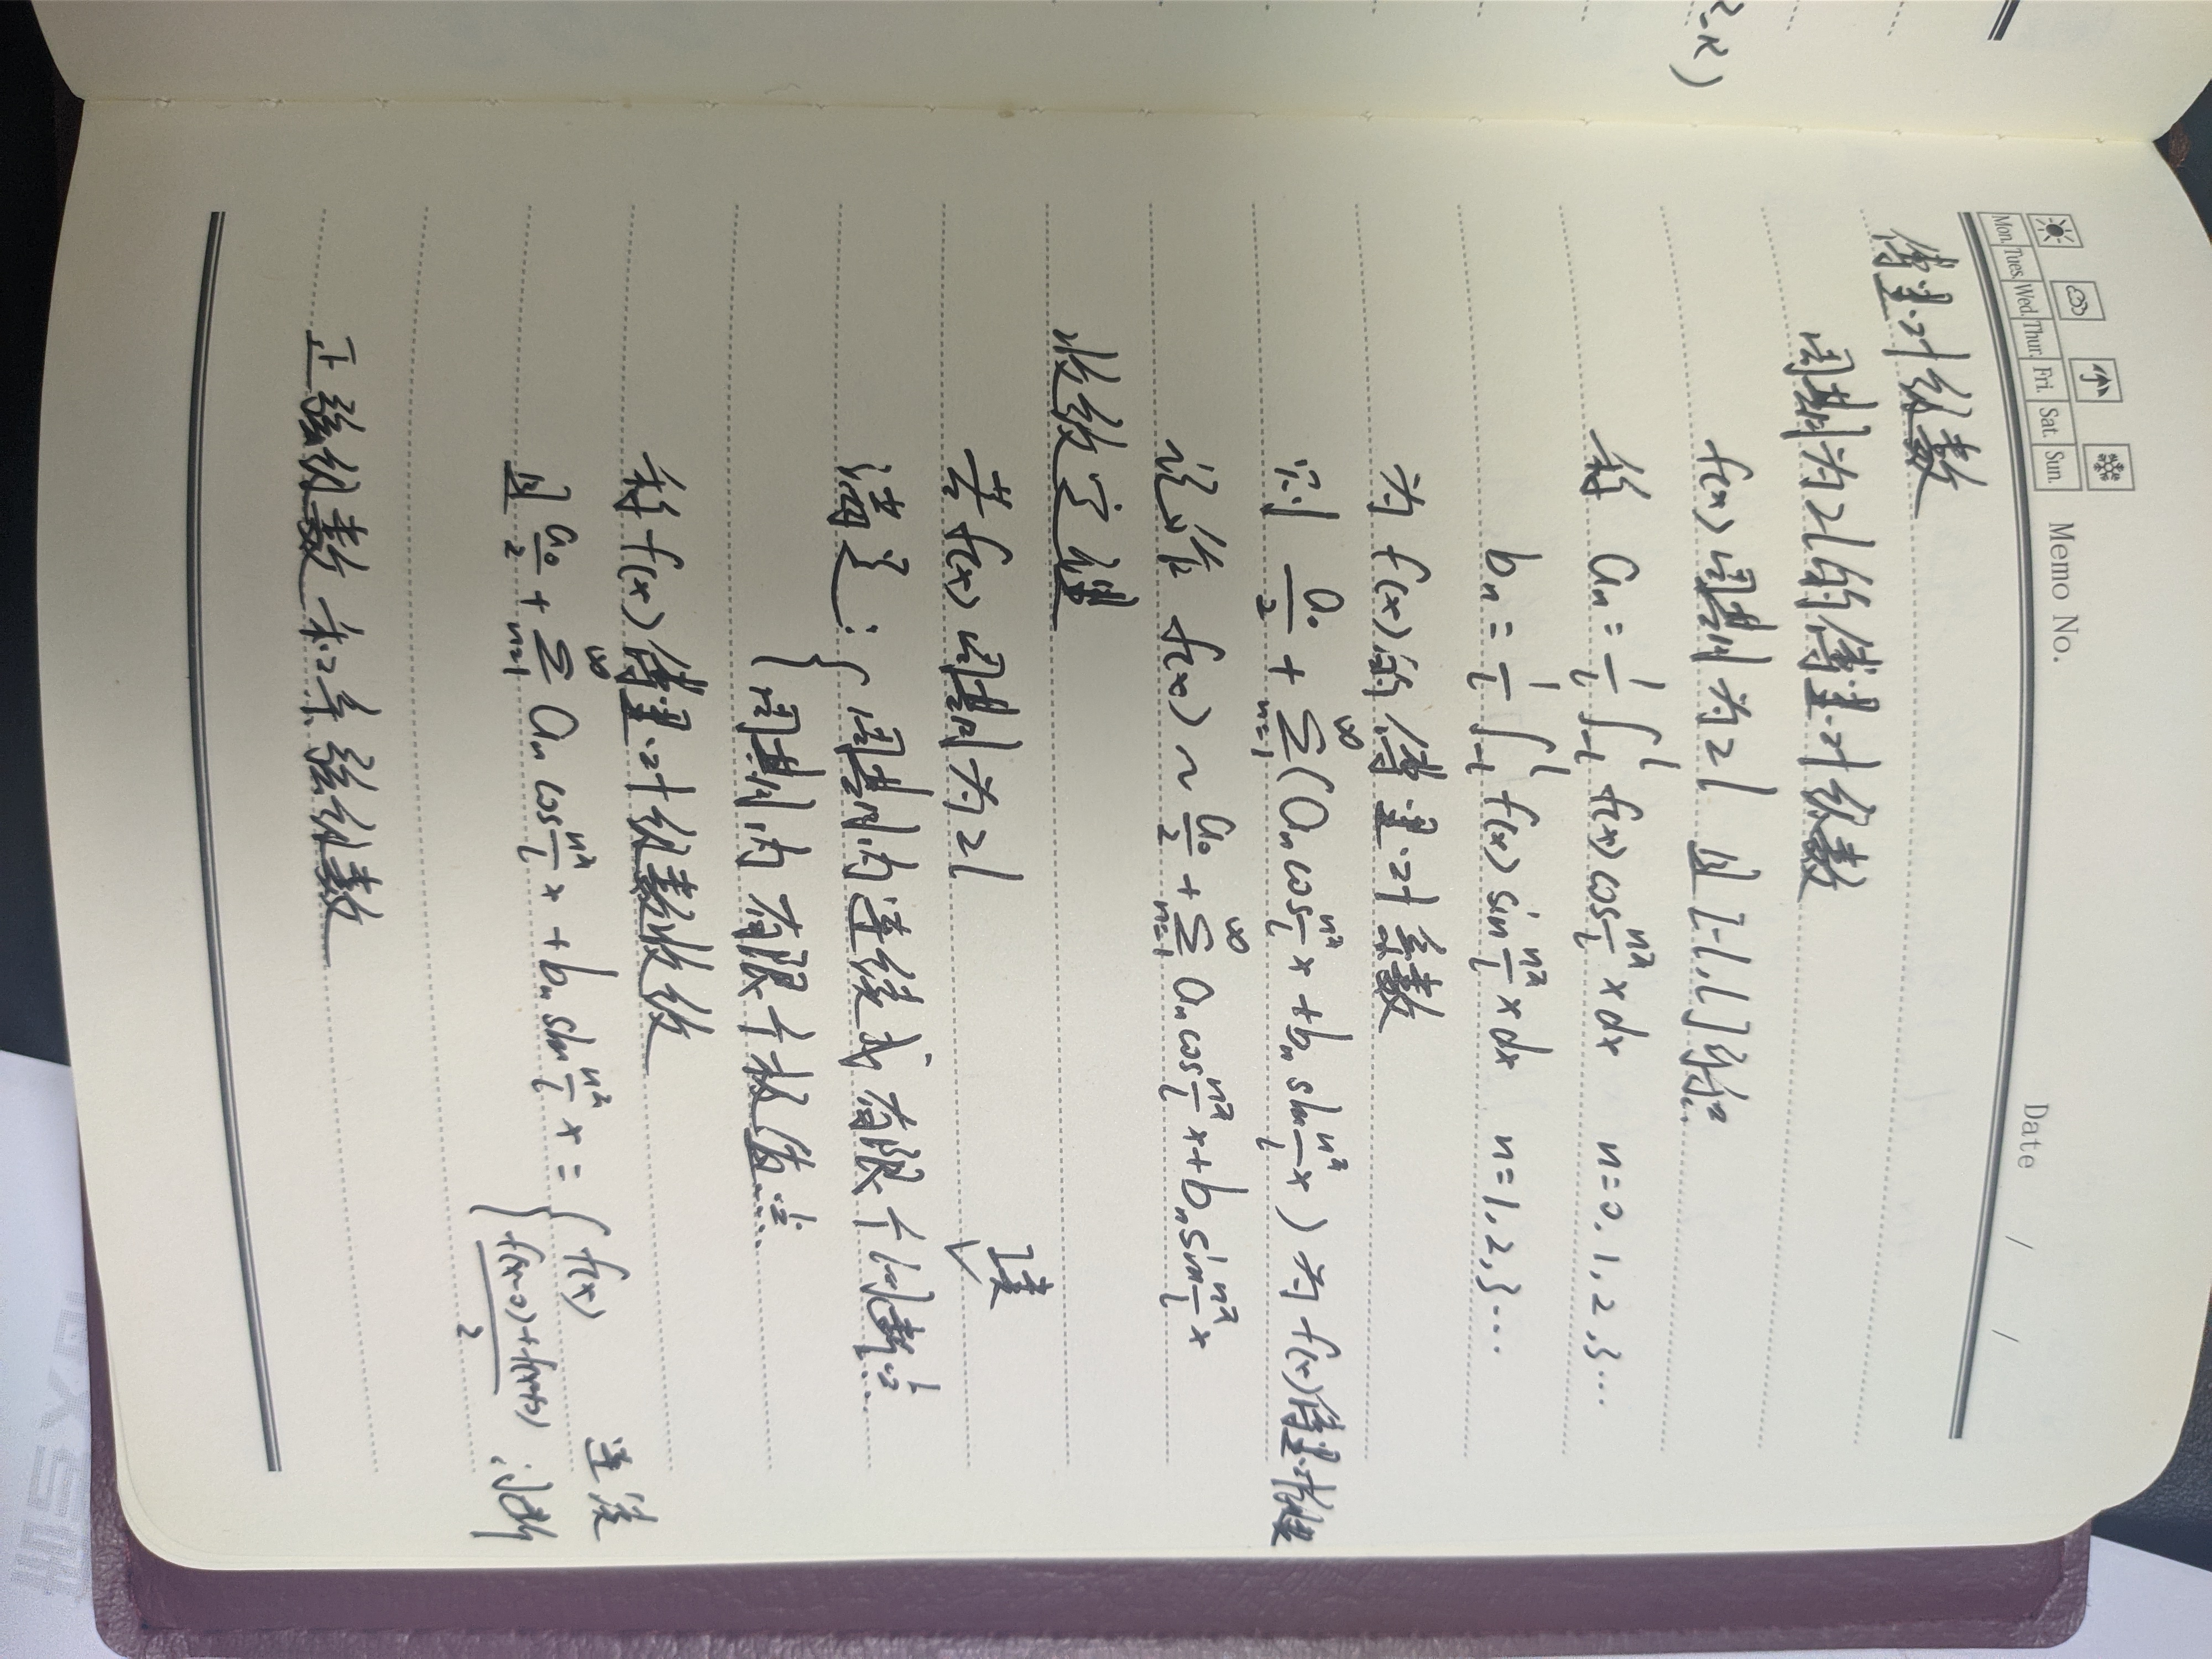 2-x)
Memo No.
Date / /
Mon. Tues. Wed. Thur. Fri. Sat. Sun.
傅里叶级数
周期为2l的傅里叶级数
f(x)周期为2l 且[-l,l]可积
称 aₙ = 1/l ∫₋ₗˡ f(x)cos nπ/l x dx n=0,1,2,3...
bₙ = 1/l ∫₋ₗˡ f(x)sin nπ/l x dx n=1,2,3...
为f(x)的傅里叶系数
则 a₀/2 + ∑ₙ₌₁^∞ (aₙcos nπ/l x + bₙ sin nπ/l x) 为f(x)傅里叶级数
记作 f(x) ~ a₀/2 + ∑ₙ₌₁^∞ aₙcos nπ/l x + bₙsin nπ/l x
收敛定理
若f(x)周期为2l
满足: { 周期内连续或有限个间断点
周期内有限个极值点
称f(x)傅里叶级数收敛
且 a₀/2 + ∑ₙ₌₁^∞ aₙ cos nπ/l x + bₙ sin nπ/l x = { f(x) 连续
f(x-0)+f(x+0)/2 间断
正弦级数和余弦级数